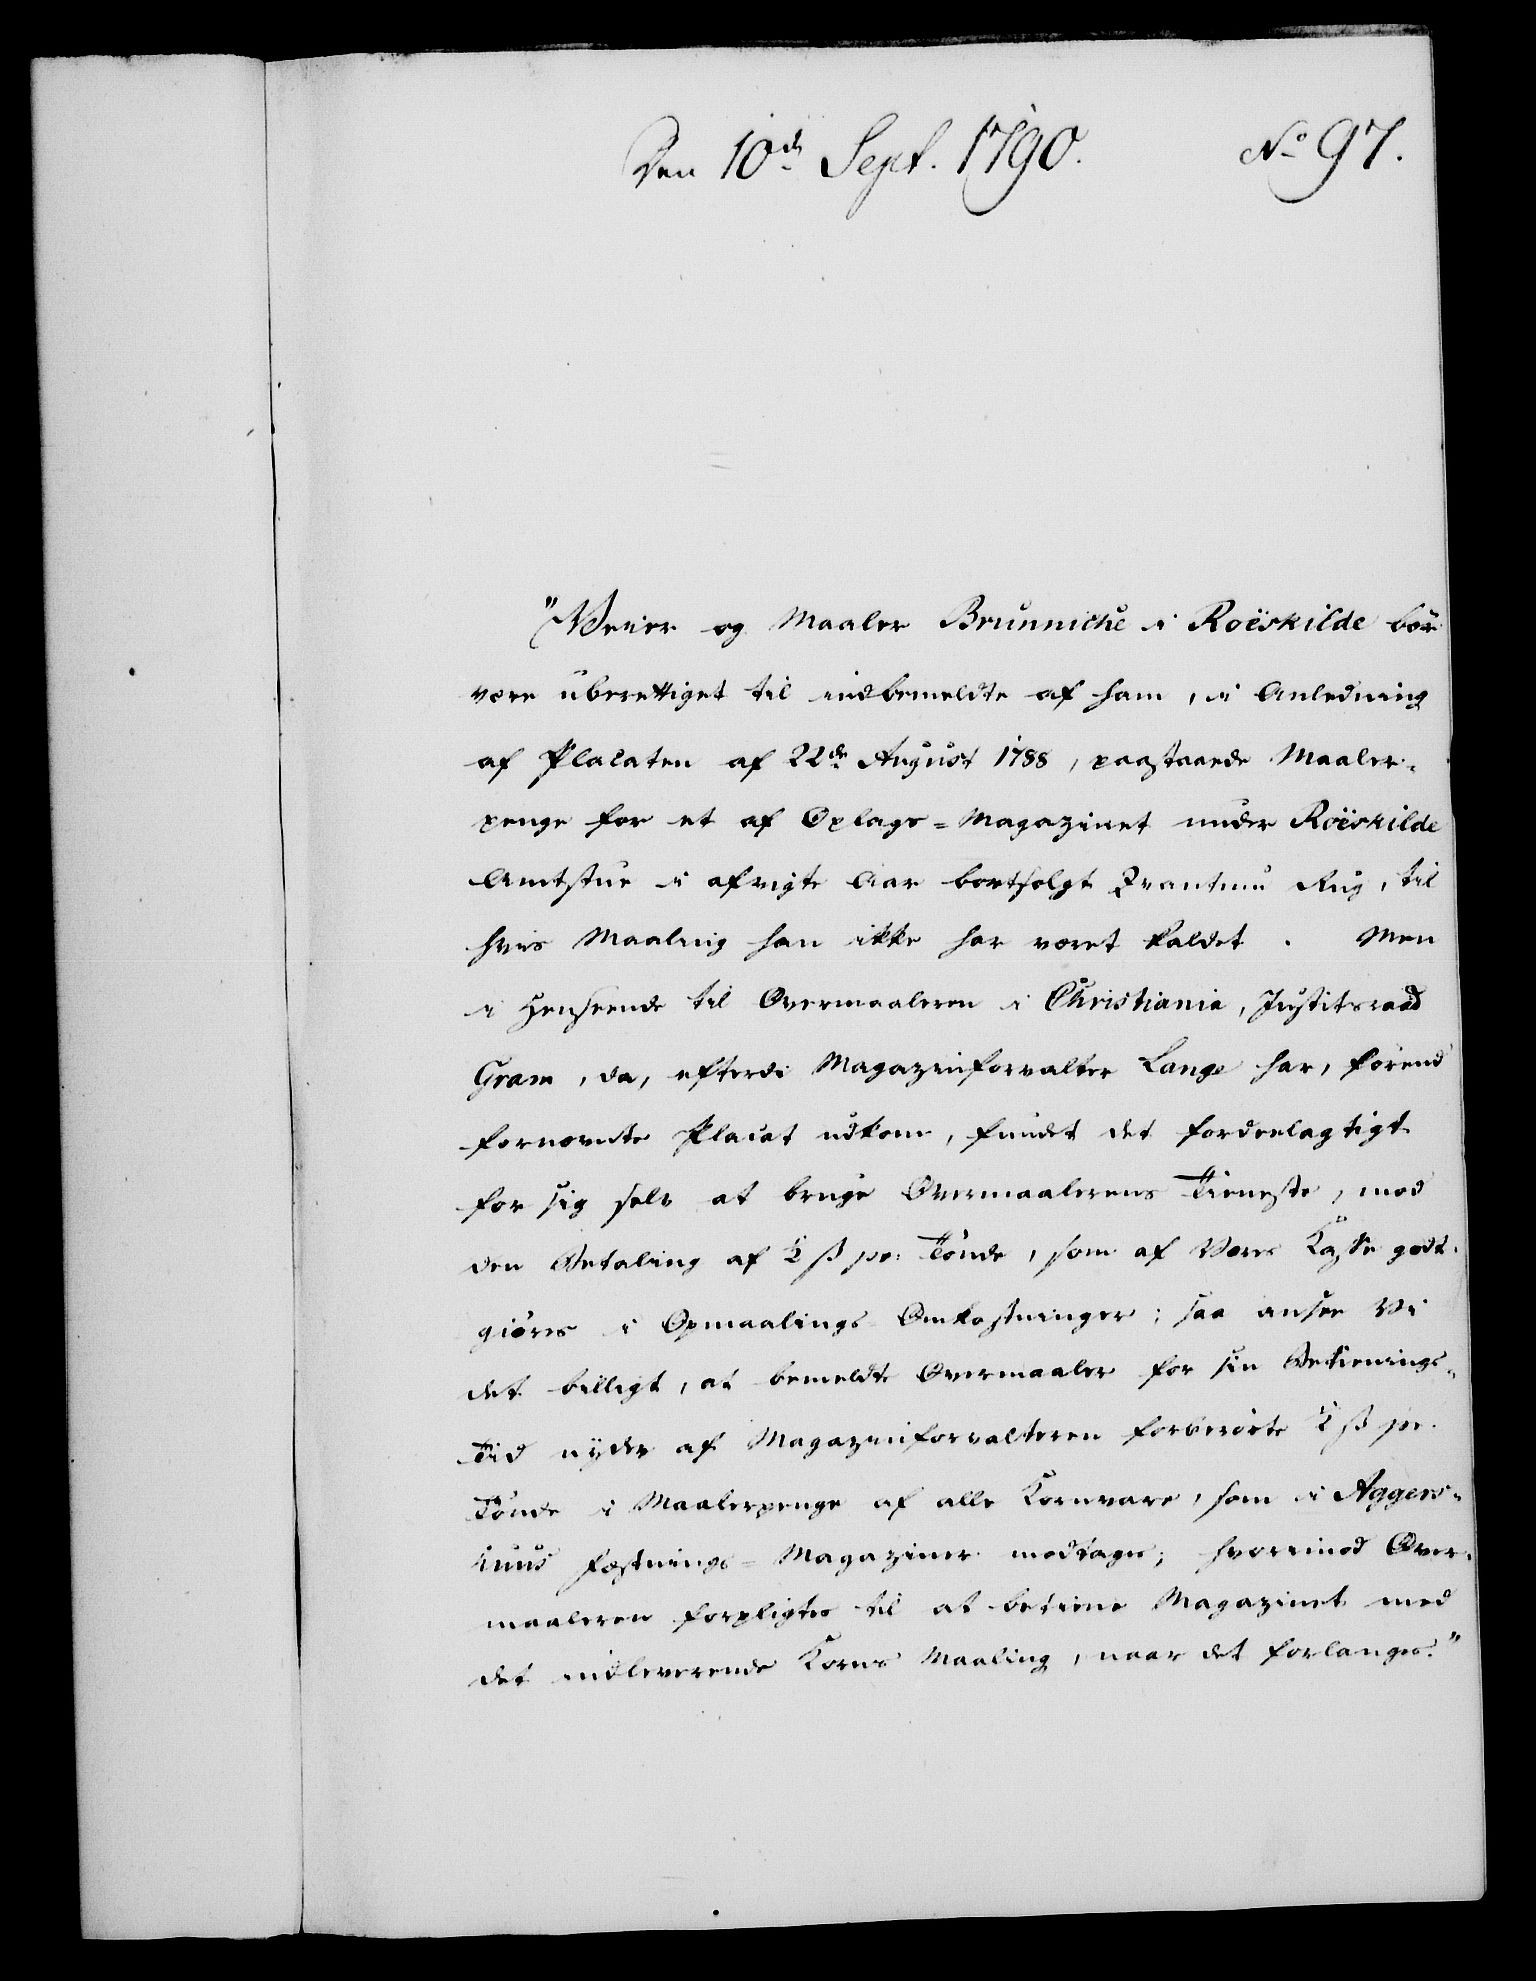 Den 10de Sept. 1790. No 97.
"Veier og Maaler Brunniche i Roëskilde bör
være uberettiget til indbemeldte af ham, i Anledning
af Placaten af 22de August 1788, paastaaede Maaler-
penge for et af Oplags=Magazinet under Roëskilde
Amtstue i afvigte Aar bortsolgt Qvantum Rug, til
hvis Maaling han ikke har været kaldet. Men
i Henseende til Overmaaleren i Christiania, Justitsraad
Gram, da, efterdi Magazinforvalter Lange har, förend
fornævnte Placat udkom, fundet det fordeelagtigt
for sig selv at bruge Overmaalerens Tieneste, mod
den Betaling af ½ ß pr: Tönde, som af Vores Kasse godt-
giöres i Opmaalings Omkostninger; saa ansee Vi
det billigt, at bemeldte Overmaaler for sin Betienings-
Tid nyder af Magazinforvalteren forberörte ½ ß pr.
Tönde i Maalerpenge af alle Kornvare, som i Aggers-
huus Fæstnings=Magaziner modtages; hvorimod Over-
maaleren forpligtes til at betiene Magazinet med
det indleverende Korns Maaling, naar det forlanges."